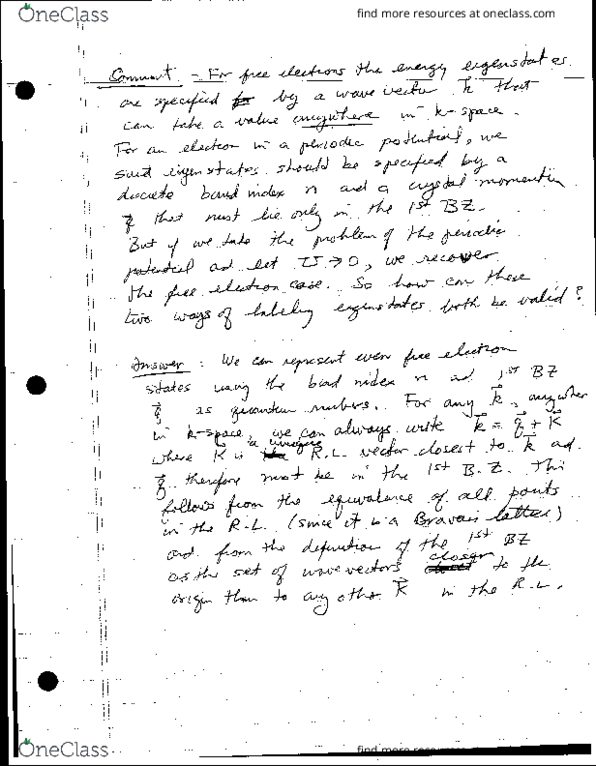 OneClass
find more resources at oneclass.com
Comment - For free electrons the energy eigenstates
are specified by a wave vector k that
can take a value anywhere in k-space.
For an electron in a periodic potential, we
said eigenstates should be specified by a
discrete band index n and a crystal momentum
q that must lie only in the 1st BZ.
But if we take the problem of the periodic
potential ad let U → 0, we recover
the free electron case. So how can these
two ways of labeling eigenstates both be valid?
Answer : We can represent even free electron
states using the band index n ad 1st BZ
q as quantum numbers. For any k, anywhere
in k-space, we can always write k = q + K
where K is a unique R.L. vector closest to k ad
q therefore must be in the 1st B.Z. This
follows from the equivalence of all points
in the R.L. (since it is a Bravais lattice)
ad from the definition of the 1st BZ
as the set of wavevectors closer to the
origin than to any other K in the R.L.
OneClass
find more resources at oneclass.com